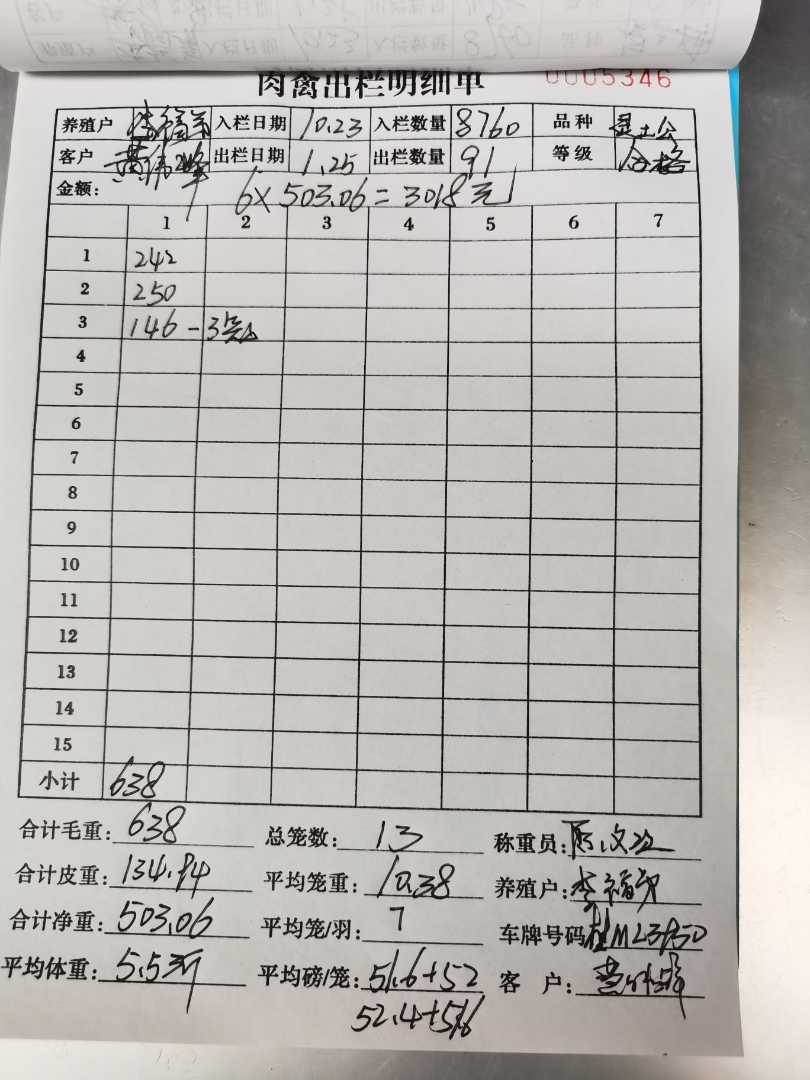 肉禽出栏明细单 0005346
养殖户 入栏日期 10.23 入栏数量 8760 品种 土公
客户 出栏日期 1.25 出栏数量 91 等级 合格
金额: 6×503.06=3018元
1 2 3 4 5 6 7
1 242
2 250
3 146-3
4
5
6
7
8
9
10
11
12
13
14
15
小计 638
合计毛重: 638 总笼数: 13 称重员:
合计皮重: 134.94 平均笼重: 10.38 养殖户:
合计净重: 503.06 平均笼/羽: 7 车牌号码
平均体重: 5.53斤 平均磅/笼: 51.6+52 客户:
52.4+51.6